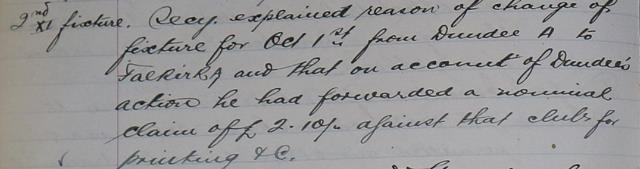 2nd XI fixture. Secy. explained reason of change of
fixture for Oct 1st from Dundee A to
Falkirk A and that on account of Dundee's
action he had forwarded a nominal
claim of £2-10/- against that club for
printing &C.